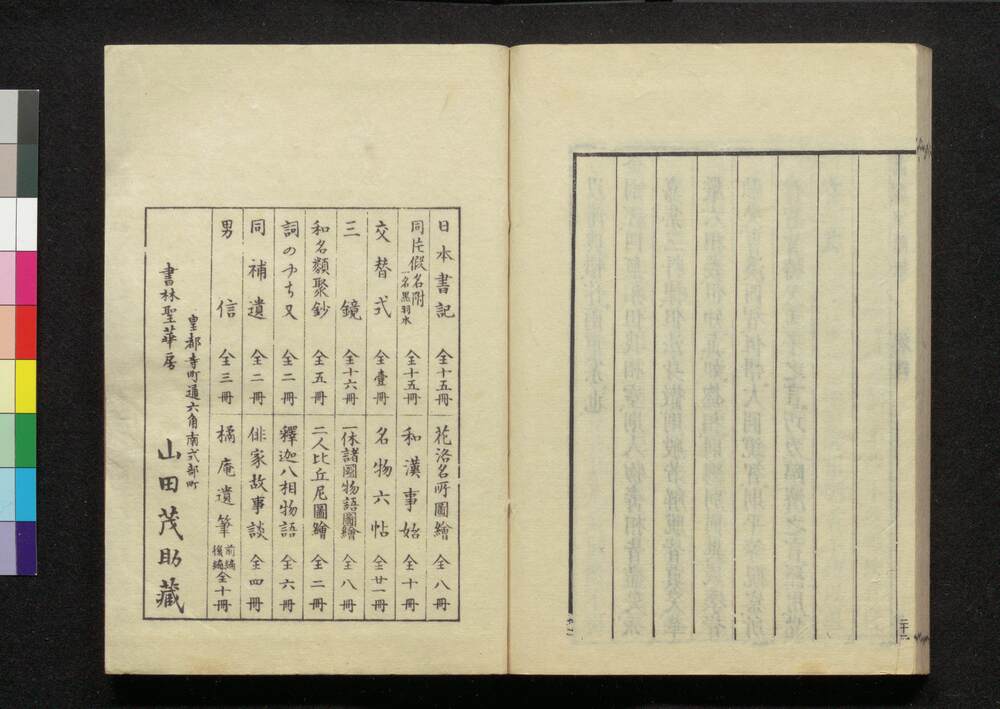 日本書記 全十五冊 花洛名所圖繪 全八冊
同片假名附 一名黒羽水 全十五冊 和漢事始 全十冊
交替式 全壹冊 名物六帖 全廿一冊
三鏡 全十六冊 一休諸國物語圖繪 全八冊
和名類聚鈔 全五冊 二人比丘尼圖繪 全二冊
詞のやちまた 全二冊 釋迦八相物語 全六冊
同補遺 全二冊 俳家故事談 全四冊
男信 全三冊 橘庵遺筆 前編後編 全十冊
皇都寺町通六角南式部町
書林聖華房 山田茂助藏